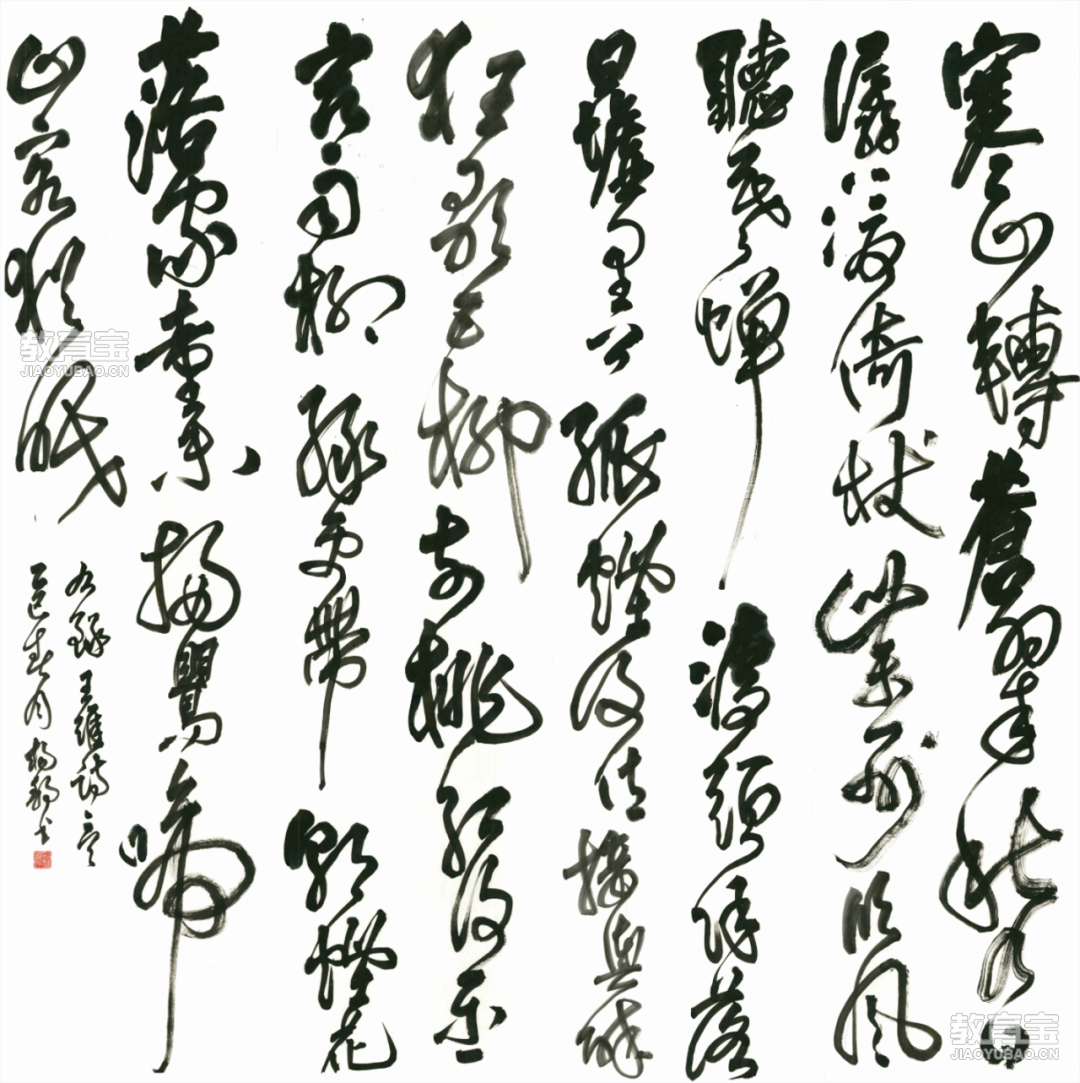 寒山轉蒼翠秋水日
潺湲倚杖柴門臨風
聽暮蟬渡頭餘落
日墟里上孤煙復值接輿醉
狂歌五柳前桃紅復含
宿雨柳綠更帶朝煙花
落家童未掃鶯啼
山客猶眠
右錄王維詩
乙巳春月楊書
教育宝
JIAOYUBAO.CN
教育宝
JIAOYUBAO.CN